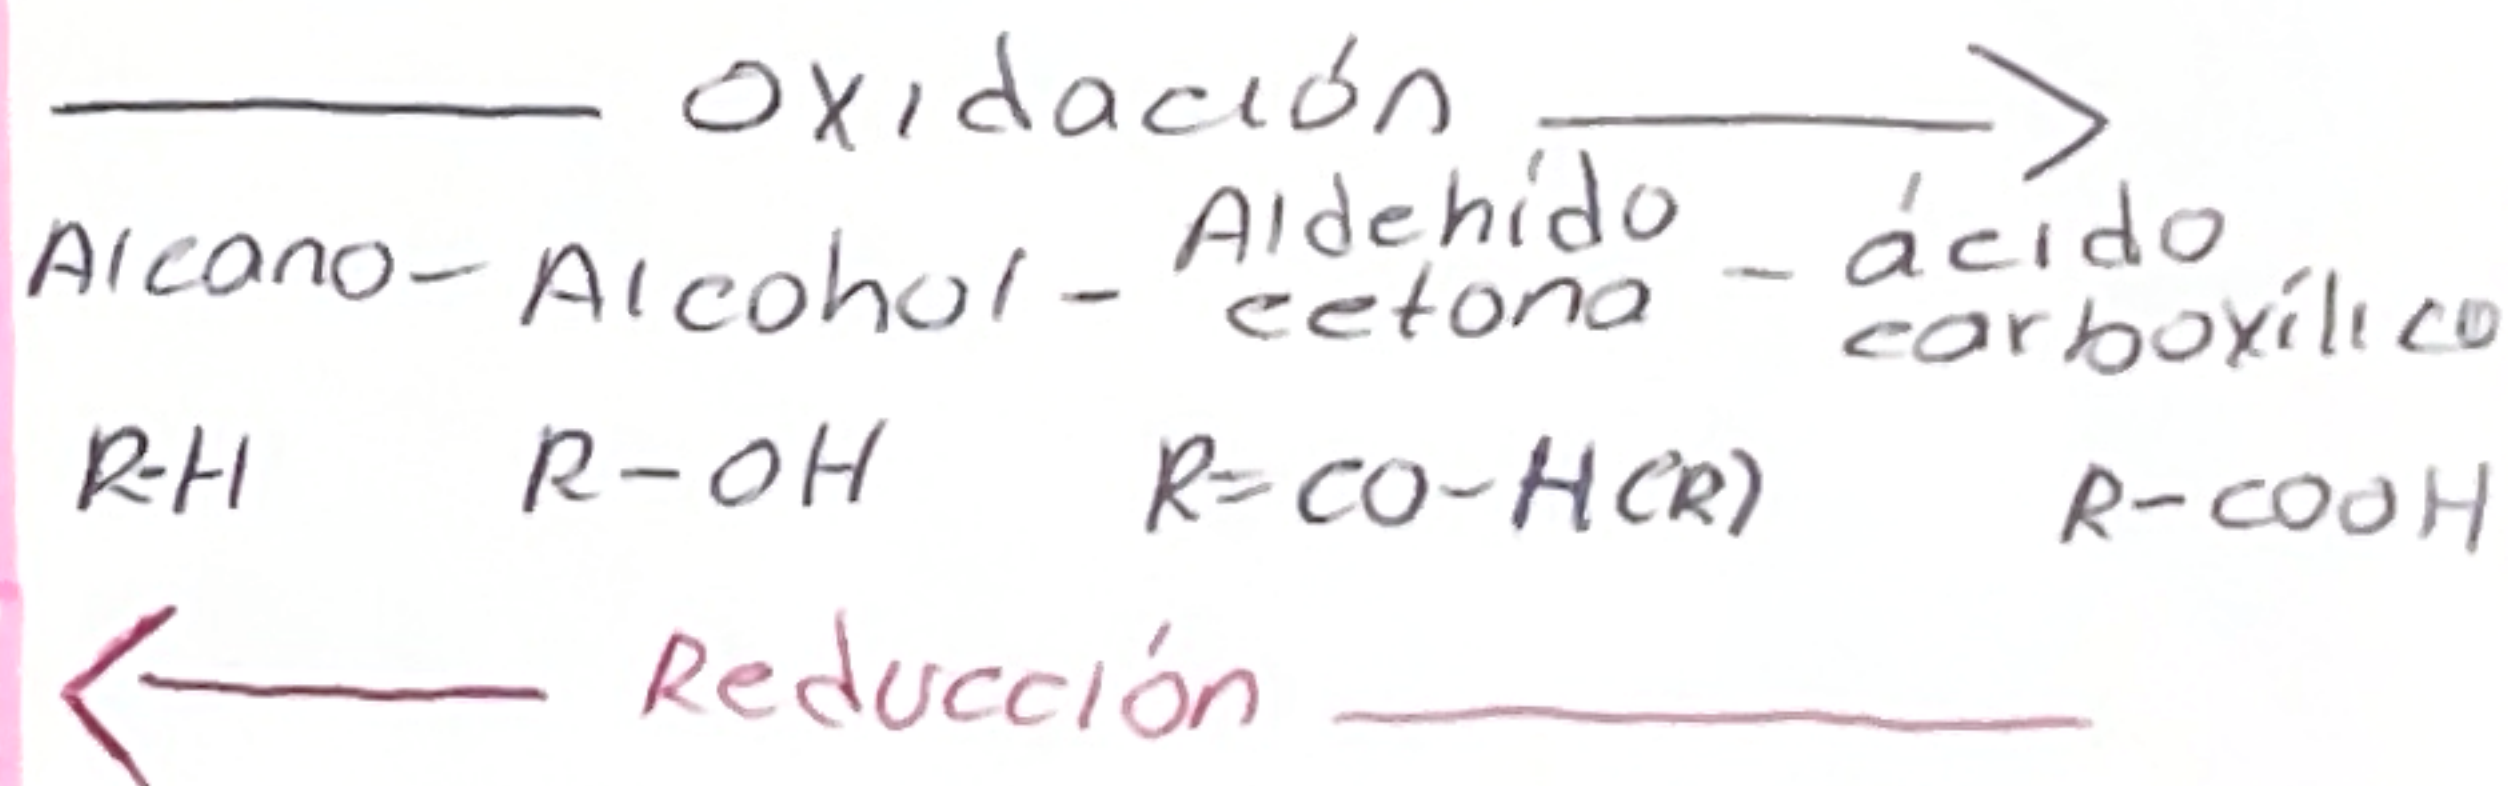 Oxidación
Alcano - Alcohol - Aldehído cetona - ácido carboxílico
R-H R-OH R=CO-H(R) R-COOH
Reducción